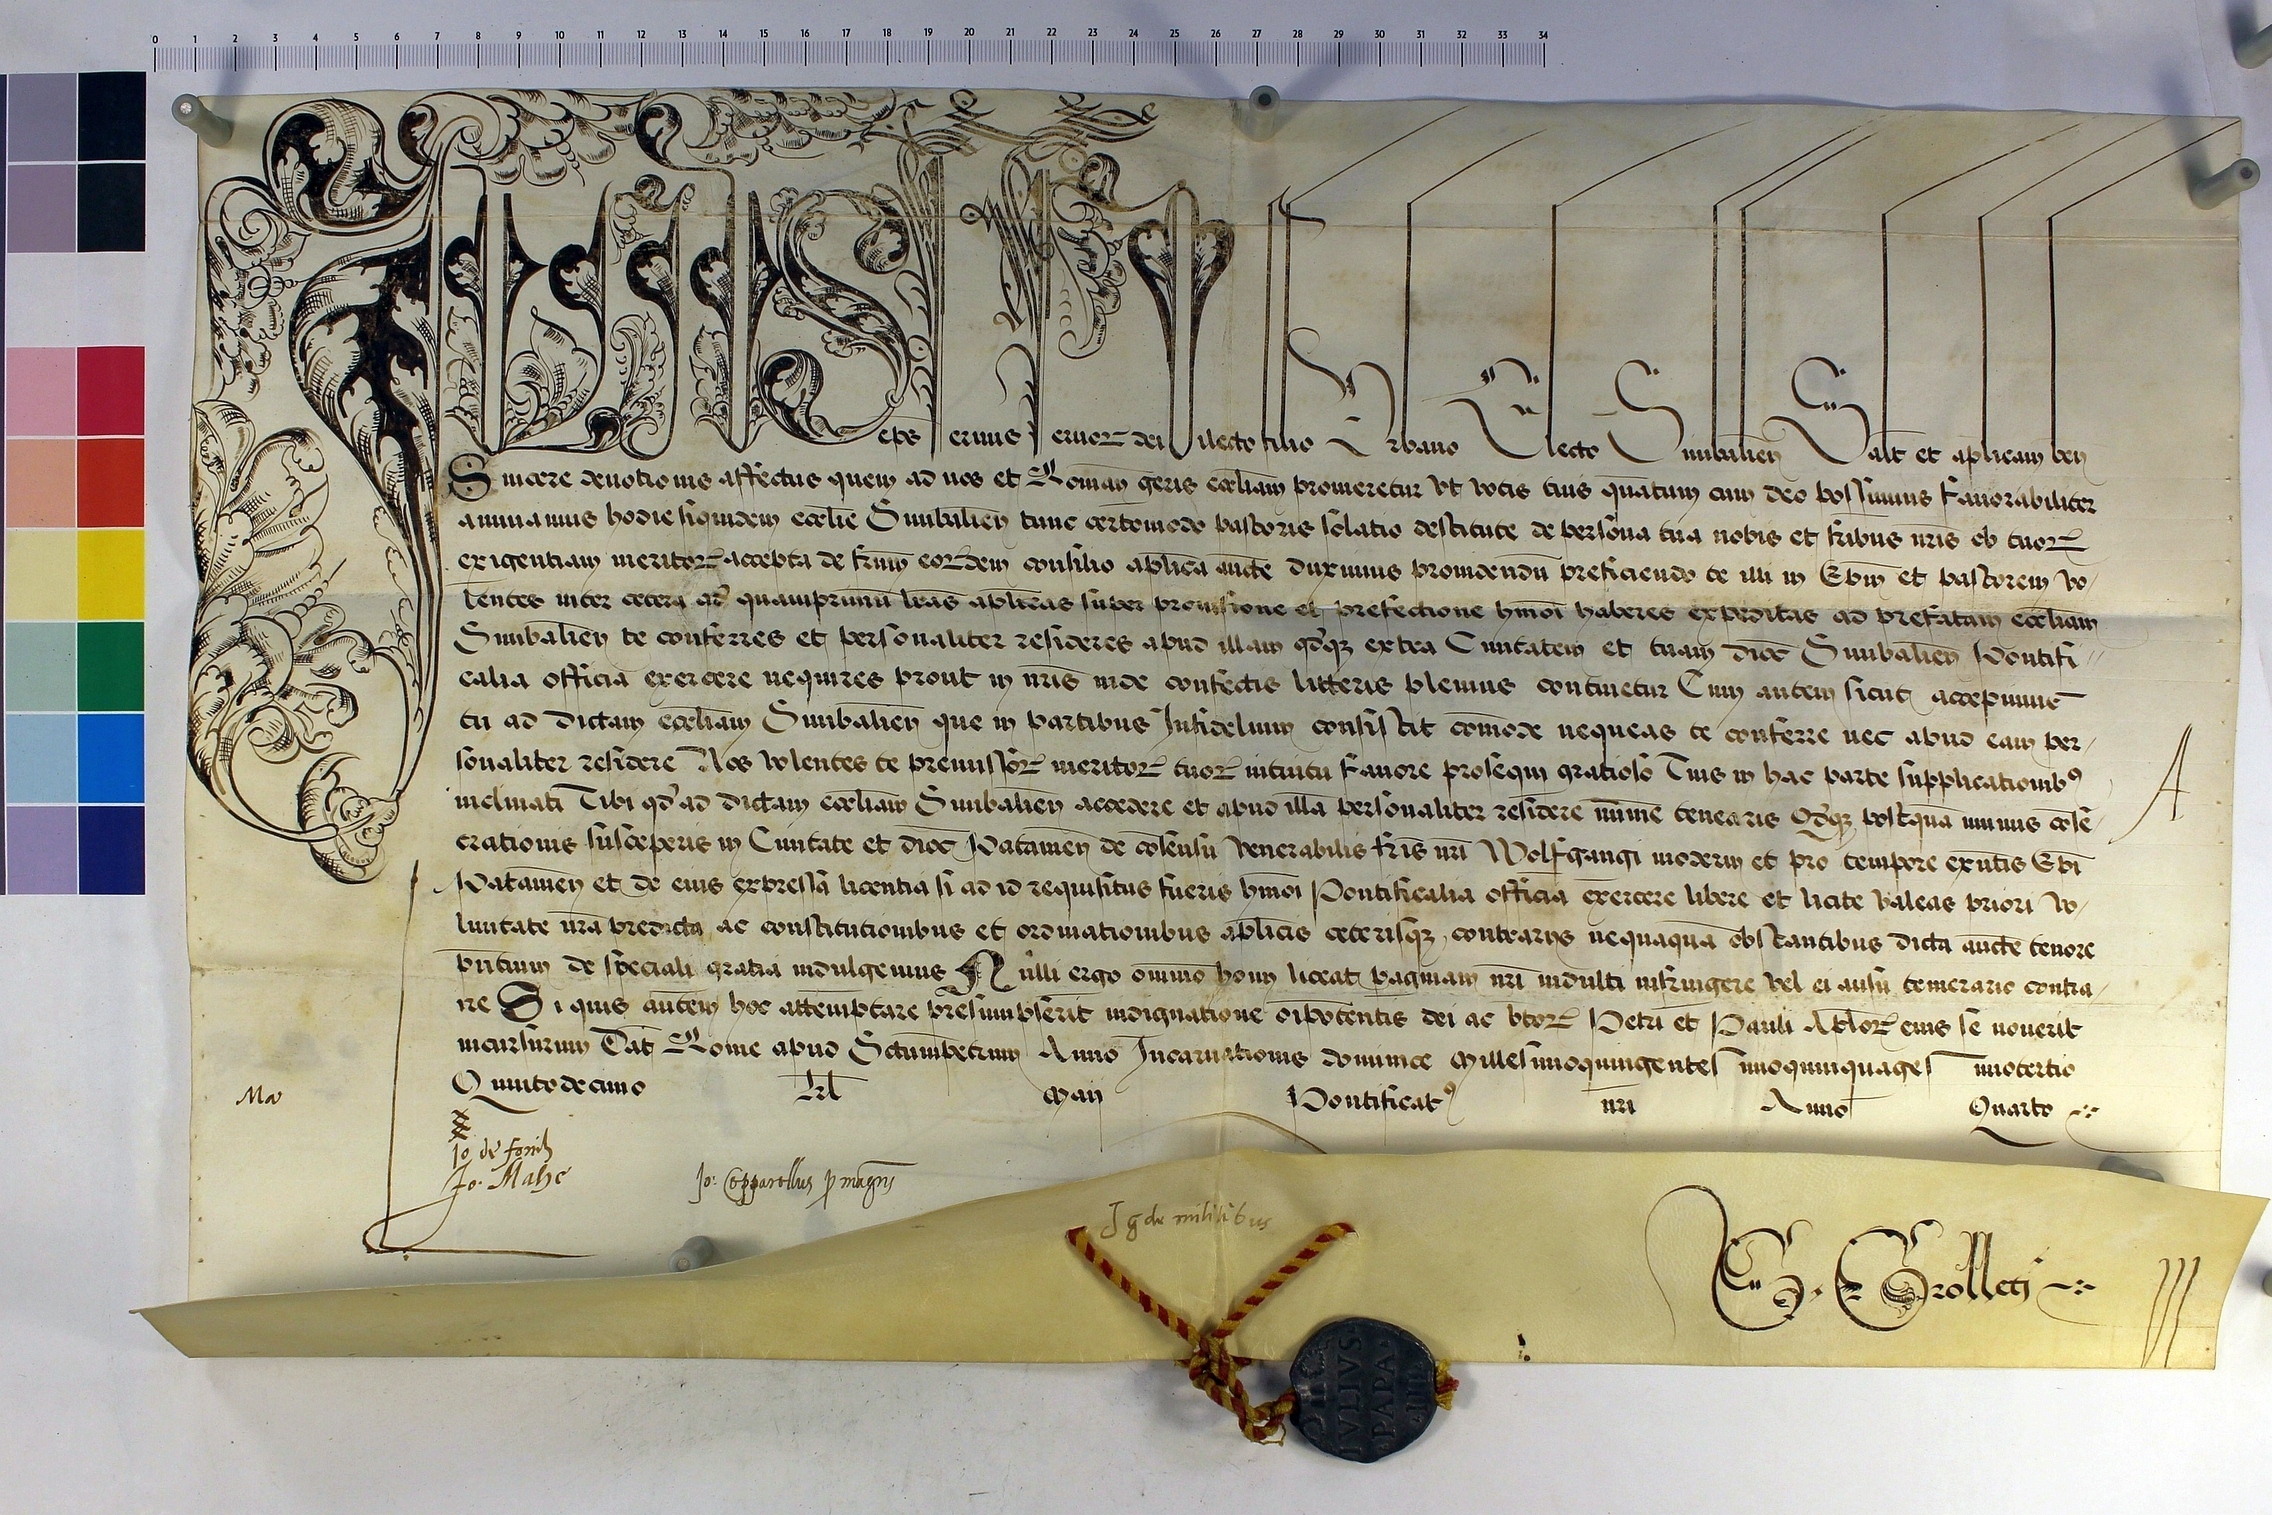 0 1 2 3 4 5 6 7 8 9 10 11 12 13 14 15 16 17 18 19 20 21 22 23 24 25 26 27 28 29 30 31 32 33 34
JULIUS eps servus servor dei Dilecto filio Urbano Electo Simbalien Salt et aplicam ben
Sincere devotionis affectus quem ad nos et Roman geris eccliam promeretur ut votis tuis quantum cum deo possumus favorabiliter
annuamus hodie siquidem ecclie Simbalien tunc certomodo pastoris solatio destitute de persona tua nobis et fribus nris ob tuor
exigentiam meritor accepta de frum eordem consilio aplica aucte duximus providendu preficiendo te illi in Epm et pastorem vo-
lentes inter cetera qd quamprimu lras aplicas super provisione et prefectione hmoi haberes expeditas ad prefatam eccliam
Simbalien te conferres et personaliter resideres apud illam qdque extra Civitatem et tuam dioc Simbalien Pontifi-
calia officia exercere nequires prout in nris inde confectis litteris plenius continetur Cum autem sicut accepimus
tu ad dictam eccliam Simbalien que in partibus Infidelium consistit comode nequeas te conferre nec apud eam per-
sonaliter residere Nos volentes te premissor meritor tuor intuitu favore prosequi gratioso Tuis in hac parte supplicationib
inclinati Tibi qd ad dictam eccliam Simbalien accedere et apud illa personaliter residere mime tenearis Qdque postqua munus cose-
crationis susceperis in Civitate et dioc Patavien de cosensu Venerabilis fris nri Wolfgangi moderni et pro tempore exntis Epi
Patavien et de eius expressa licentia si ad id requisitus fueris hmoi Pontificalia officia exercere libere et licite valeas priori vo-
luntate nra predicta ac constitutionibus et ordinationibus aplicis ceterisque contrariis nequaqua obstantibus dicta aucte tenore
pntium de speciali gratia indulgemus Nulli ergo omnino homi liceat paginam nri indulti infringere vel ei ausu temerario contra-
ire Si quis autem hoc attemptare presumpserit indignatione oipotentis dei ac btor Petri et Pauli Aplor eius se noverit
incursurum Dat Rome apud Sctumpetrum Anno Incarnationis dominice Millesimoquingentesimoquinquagesimotertio
Quintodecimo Kl Maii Pontificat nri Anno Quarto
A
Ma
Jo. Mahe
Jo: Cepparellus p magris
Jg de militibus
Grolleti
IVLIVS
PAPA
III